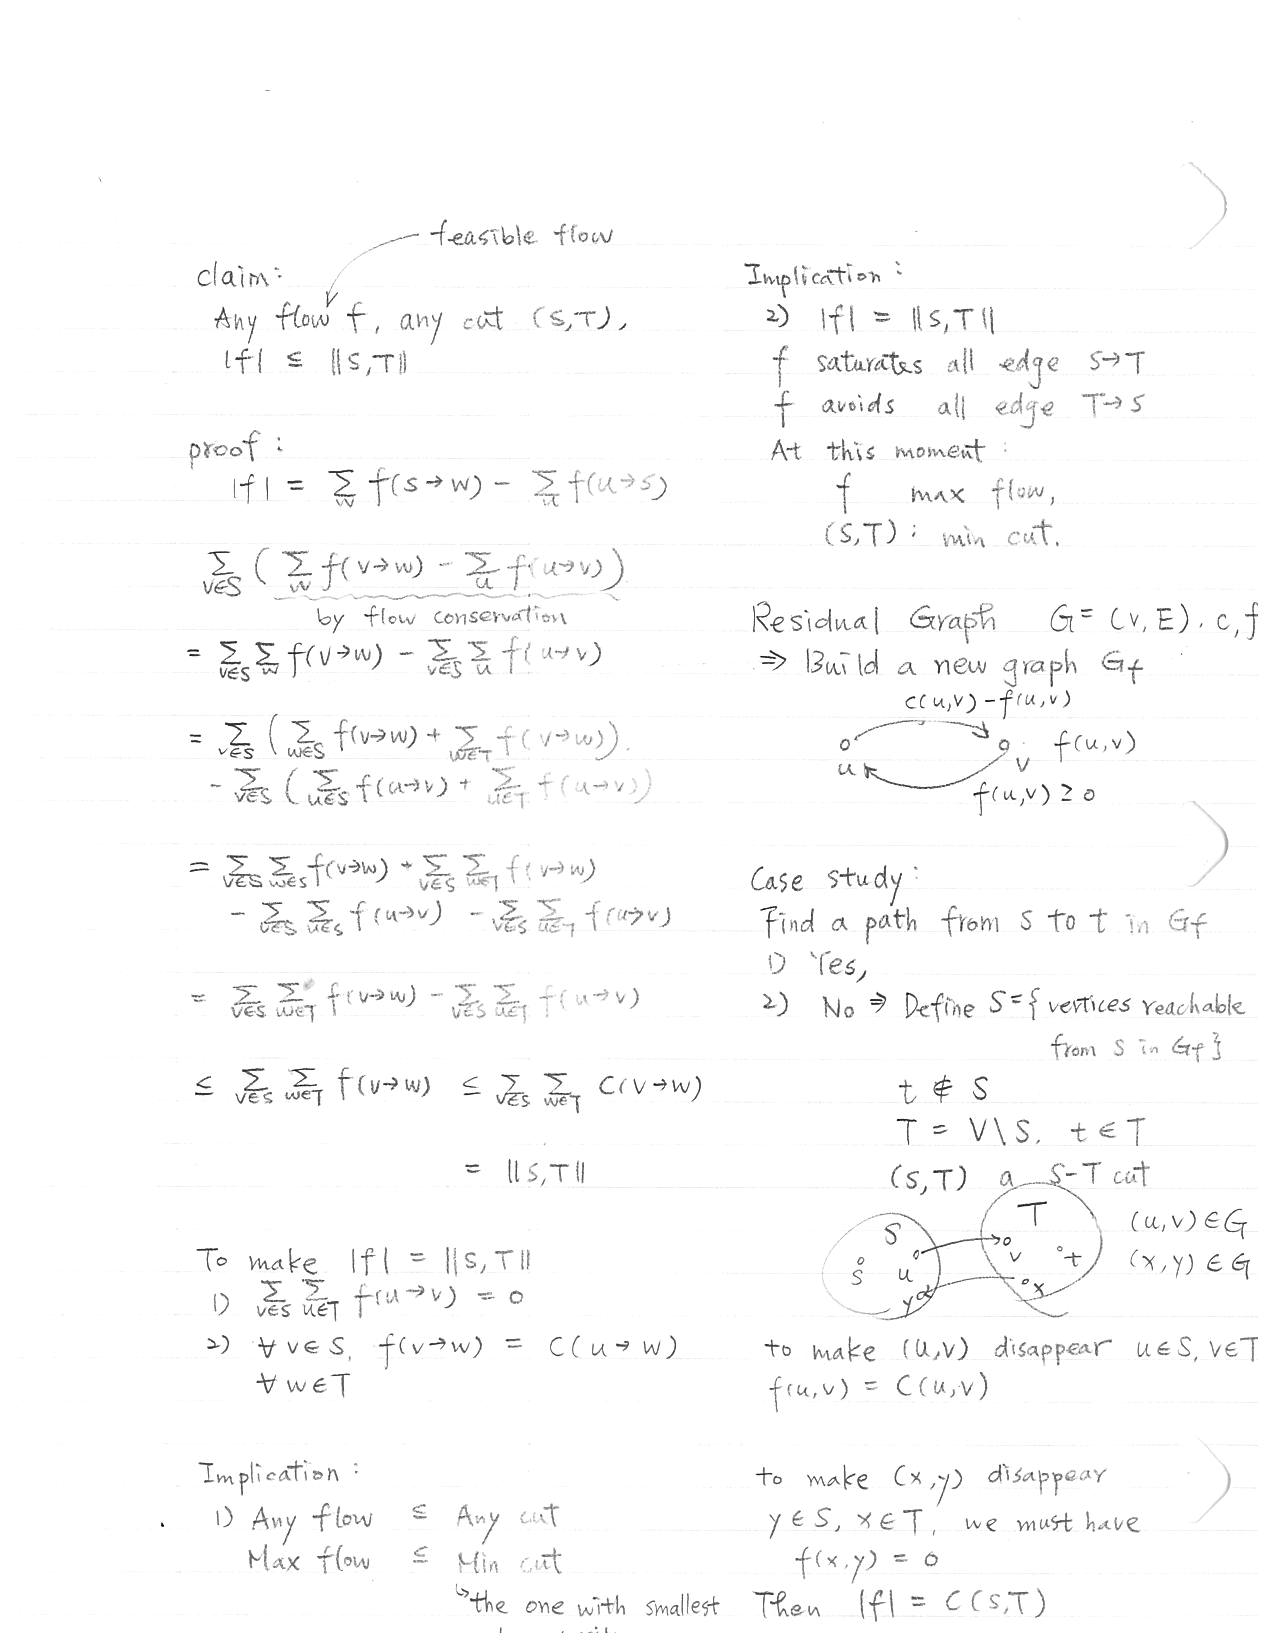 feasible flow
claim:
Any flow f, any cut (S,T),
|f| ≤ ||S,T||
proof:
|f| = ∑_w f(s→w) - ∑_u f(u→s)
∑_{v∈S} ( ∑_w f(v→w) - ∑_u f(u→v) )
by flow conservation
= ∑_{v∈S} ∑_w f(v→w) - ∑_{v∈S} ∑_u f(u→v)
= ∑_{v∈S} ( ∑_{w∈S} f(v→w) + ∑_{w∈T} f(v→w) ).
- ∑_{v∈S} ( ∑_{u∈S} f(u→v) + ∑_{u∈T} f(u→v) )
= ∑_{v∈S} ∑_{w∈S} f(v→w) + ∑_{v∈S} ∑_{w∈T} f(v→w)
- ∑_{v∈S} ∑_{u∈S} f(u→v) - ∑_{v∈S} ∑_{u∈T} f(u→v)
= ∑_{v∈S} ∑_{w∈T} f(v→w) - ∑_{v∈S} ∑_{u∈T} f(u→v)
≤ ∑_{v∈S} ∑_{w∈T} f(v→w) ≤ ∑_{v∈S} ∑_{w∈T} C(v→w)
= ||S,T||
To make |f| = ||S,T||
1) ∑_{v∈S} ∑_{u∈T} f(u→v) = 0
2) ∀ v∈S, f(v→w) = C(u→w)
∀ w∈T
Implication:
1) Any flow ≤ Any cut
Max flow ≤ Min cut
↳ the one with smallest
Implication:
2) |f| = ||S,T||
f saturates all edge S→T
f avoids all edge T→S
At this moment:
f max flow,
(S,T): min cut.
Residual Graph G=(V,E). c,f
⇒ Build a new graph Gf
c(u,v)-f(u,v)
u v f(u,v)
f(u,v) ≥ 0
Case study:
Find a path from s to t in Gf
1) Yes,
2) No ⇒ Define S={vertices reachable
from s in Gf}
t ∉ S
T = V\S, t∈T
(S,T) a S-T cut
S T (u,v)∈G
s u v t (x,y)∈G
y x
to make (u,v) disappear u∈S, v∈T
f(u,v) = C(u,v)
to make (x,y) disappear
y∈S, x∈T, we must have
f(x,y) = 0
Then |f| = C(S,T)